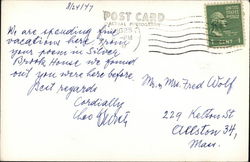 8/24/47
POST CARD
We are spending
vacations here from
your poem in Silver
Brook House we found
out you were here before
Best regards
Cordially
Mr. & Mrs. Fred Wolf
229 Kelton St
Allston 34,
Mass.